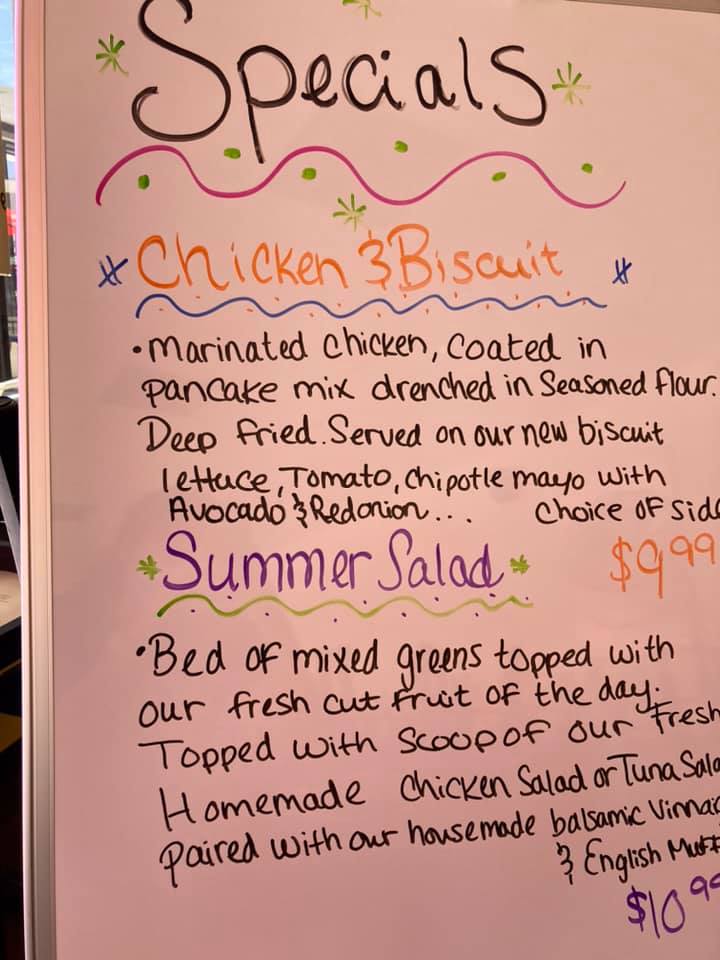 Specials
Chicken & Biscuit
• Marinated Chicken, Coated in
pancake mix drenched in Seasoned flour.
Deep fried. Served on our new biscuit
lettuce, Tomato, Chipotle mayo with
Avocado & Redonion... Choice of Sid
$9.99
Summer Salad
• Bed of mixed greens topped with
our fresh cut fruit of the day.
Topped with Scoop of our Fresh
Homemade Chicken Salad or Tuna Sala
paired with our housemade balsamic Vinnai
& English Muff
$10.99